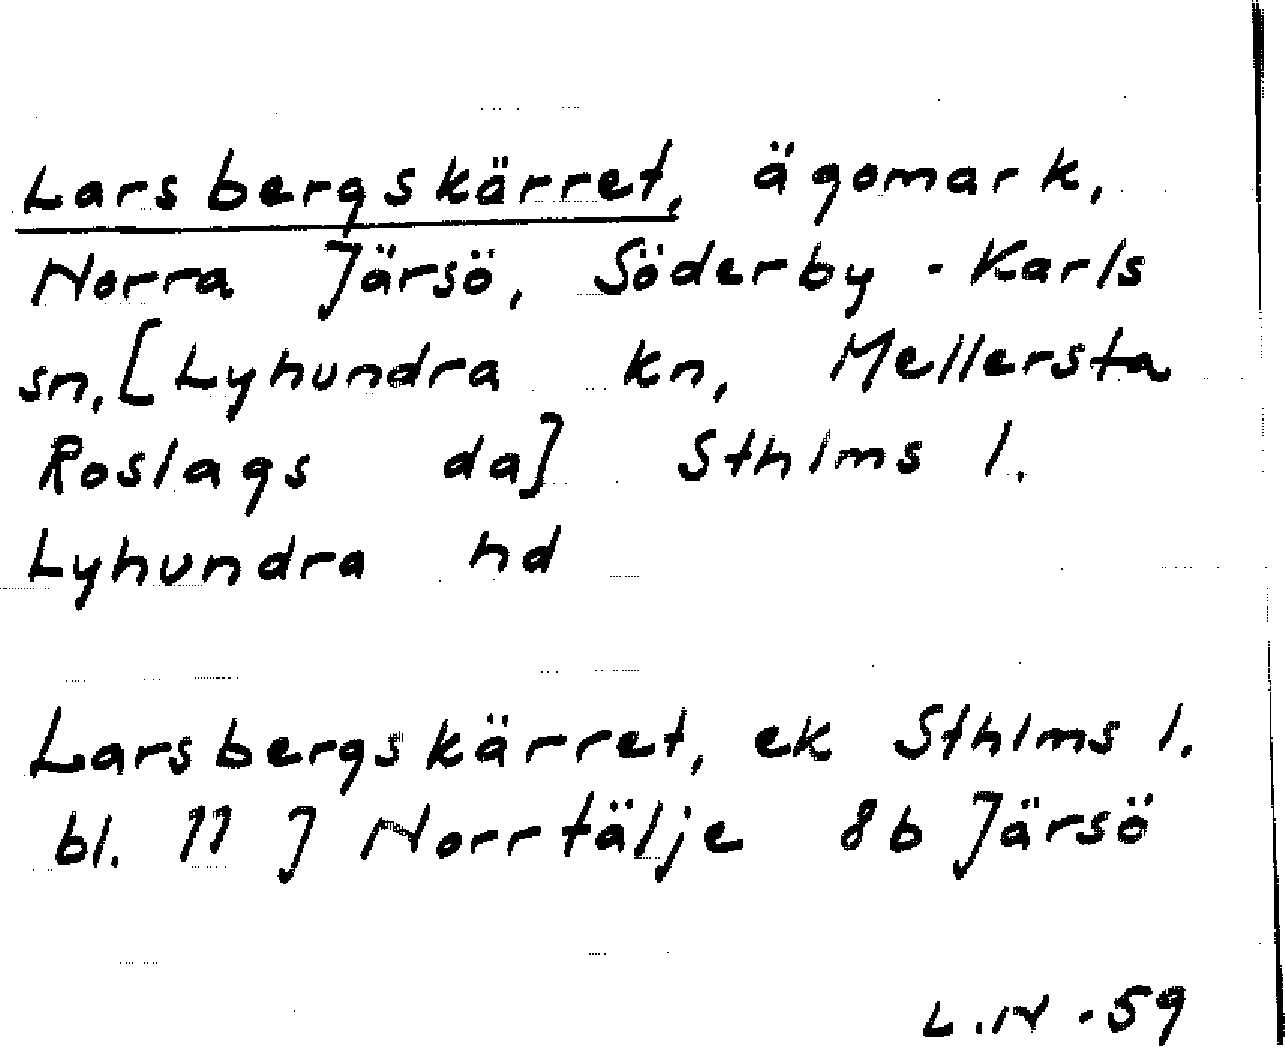 Larsbergskärret, ägomark,
Norra Järsö, Söderby-Karls
sn, [Lyhundra kn, Mellersta
Roslags da] Sthlms l.
Lyhundra hd
Larsbergskärret, ek Sthlms l.
bl. 11 J Norrtälje 8b Järsö
L.N -59